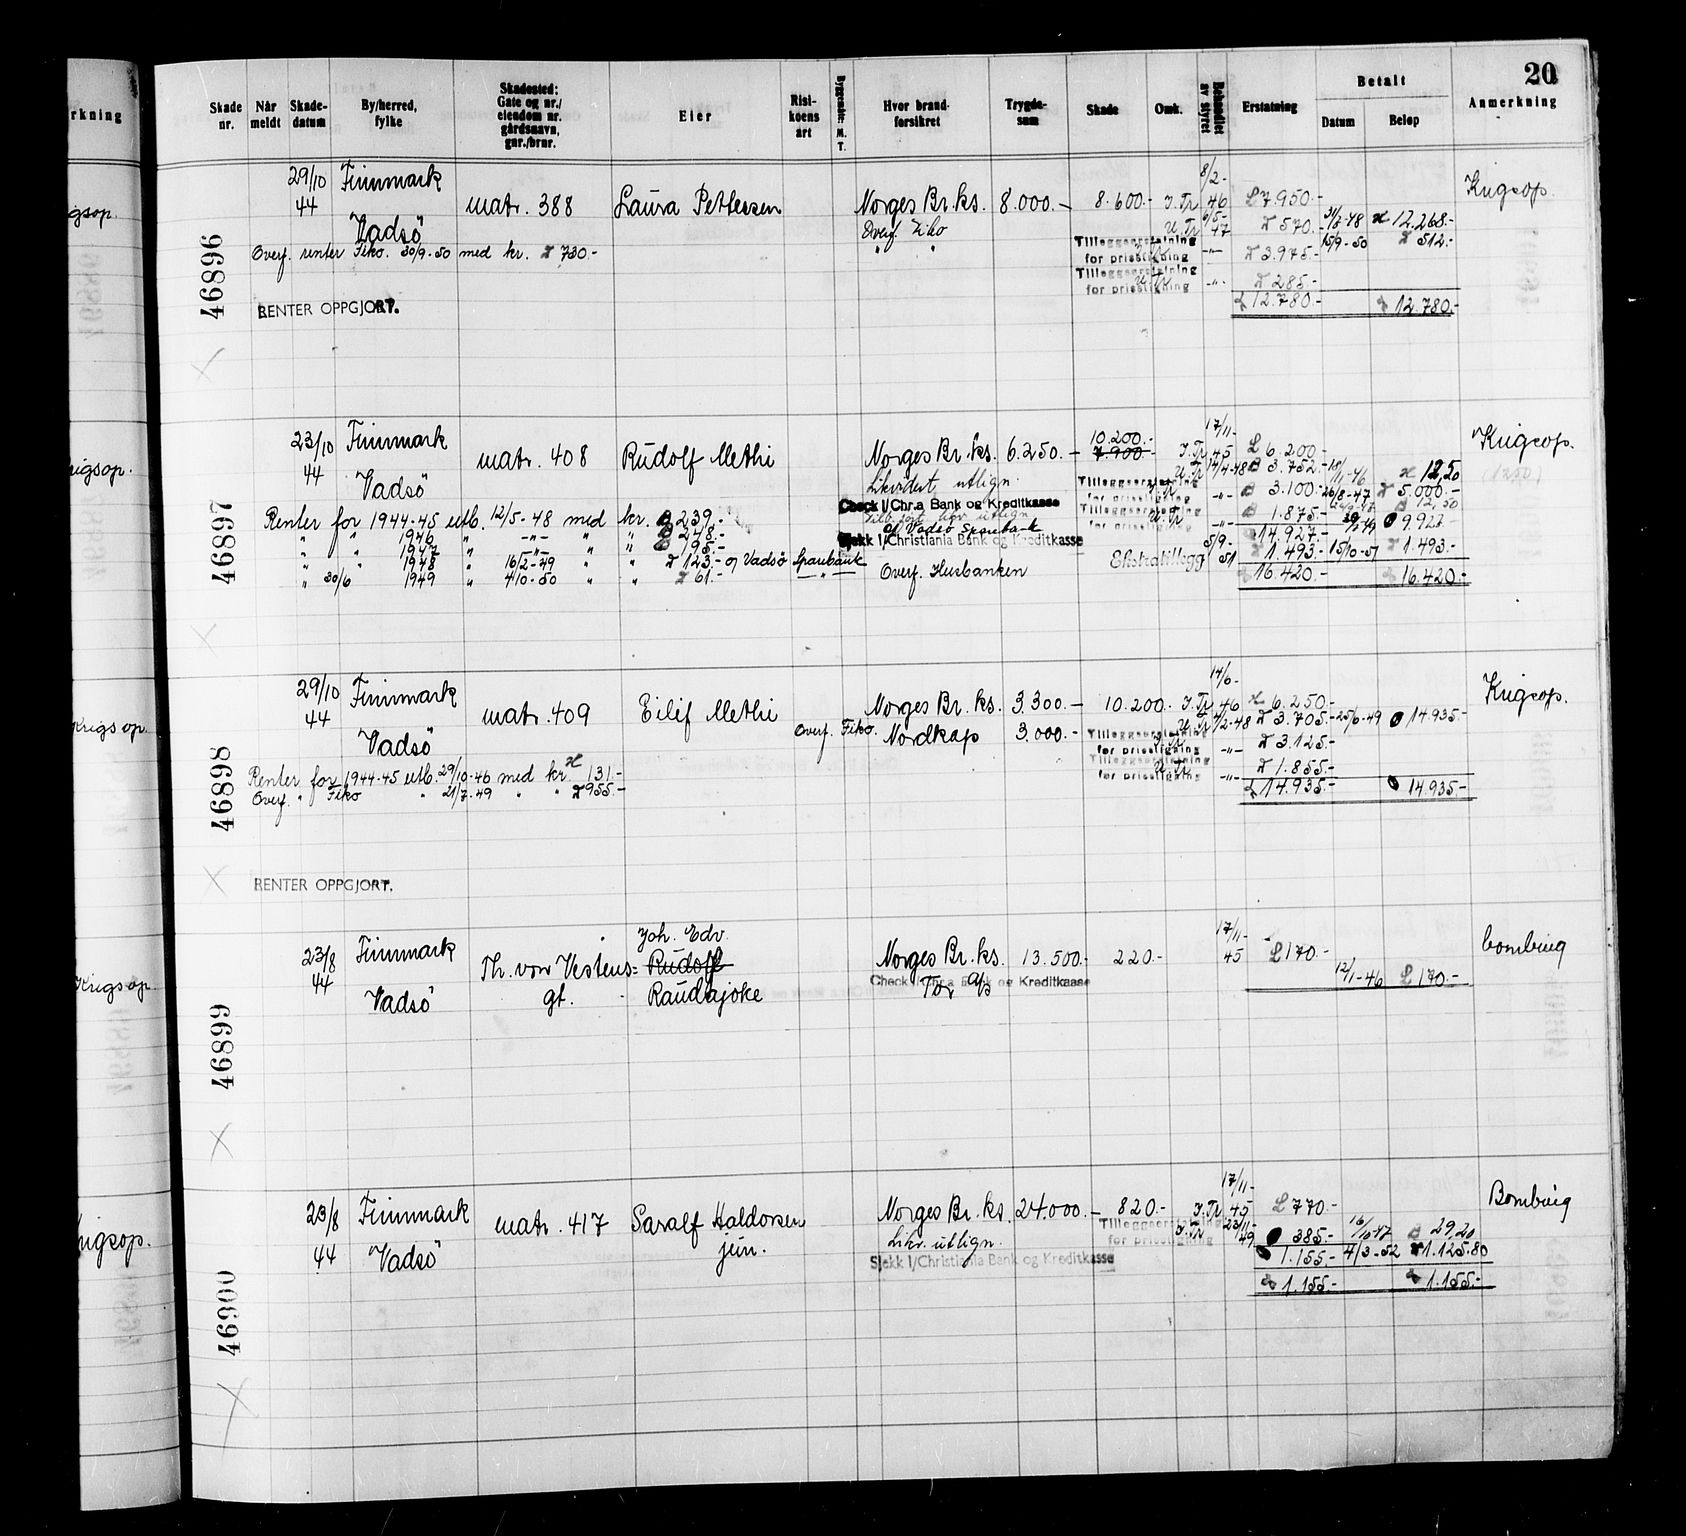 20
rkning
Skade nr. Når meldt Skade-datum By/herred, fylke Skadested: Gate og nr./ eiendom nr. gårdsnavn, gnr./brnr. Eier Risi-koens art Hvor brand-forsikret Trygde-sum Skade Omk. Behandlet av styret Erstatning Betalt Datum Beløp Anmerkning
46896
29/10 44 Finnmark Vadsö matr. 388 Laura Pettersen Norges Br.ks. 8.000.- 8.600.- J.Tr. 8/2-46 £ 7.950.- Krigsop.
Overf. Fiko U.Tr. 6/5-47 570.- 12.268.-
Tilleggserstatning for prisstigning -"- 3.975.- 15/9-50 512.-
Overf. renter Fiko. 30/9-50 med kr. 730.-
Tilleggserstatning for prisstigning U.Tr. -"- 285.-
12.780.- 12.780.-
RENTER OPPGJORT.
46897
23/10 44 Finnmark Vadsö matr. 408 Rudolf Methi Norges Br.ks. 6.250.- 10.200.- 7.900.- J.Tr. 17/11-45 £ 6.200.- Krigsop.
Likvidert utlign. U.Tr. 14/4-48 3.752.- 18/11-46 12,50 (1250)
Tilleggserstatning for prisstigning -"- 3.100.- 26/8-47 5.000.-
Check I/Chr.a Bank og Kreditkasse
Tilleggserstatning for prisstigning U.Tr. -"- 1.875.- 12,50
Renter for 1944-45 utb. 12/5-48 med kr. 239.-
" " 1946 " -"- " " 248.- 14.927.- 9.922.-
of Vadsø Sparebank
Sjekk I/Christiania Bank og Kreditkasse
" " 1947 " -"- " " 195.-
" " 1948 " 16/2-49 " " 123.- og Vadsö Sparebank Ekstratillegg 5/9-51 1.493.- 15/10-51 1.493.-
" 30/6 1949 " 4/10-50 " " 61.- -"- Overf. Husbanken 16.420.- 16.420.-
46898
29/10 44 Finnmark Vadsö matr. 409 Eilif Methi Norges Br.ks. 3.300.- 10.200.- J.Tr. 14/6-46 6.250.- Krigsop.
Overf. Fiko. Nordkap 3.000.- U.Tr. 4/2-48 3.705.- 25/6-49 14.935.-
Tilleggserstatning for prisstigning -"- 3.125.-
Tilleggserstatning for prisstigning U.Tr. -"- 1.855.-
Renter for 1944-45 utb. 29/10-46 med kr. 131.-
Overf. " Fiko " 21/7-49 " " 955.-
14.935.- 14.935.-
RENTER OPPGJORT.
46899
23/8 44 Finnmark Vadsö Th. von Vestens= gt. Joh. Edv. Rudolf Raudajoke Norges Br.ks. 13.500.- 220.- 17/11-45 £ 170.- bombing
Check I/Chr.a Bank og Kreditkasse 12/1-46 £ 170.-
46900
23/8 44 Finnmark Vadsö matr. 417 Saralf Haldorsen jun. Norges Br.ks. 24.000.- 820.- J.Tr. 17/11-45 £ 770.- Bombing
Likv. utlign. Tilleggserstatning for prisstigning J.Tr. 23/11-49 385.- 16/10-47 29,20
Sjekk I/Christiania Bank og Kreditkasse 1.155.- 4/3-52 1.125.80
1.155.- 1.155.-